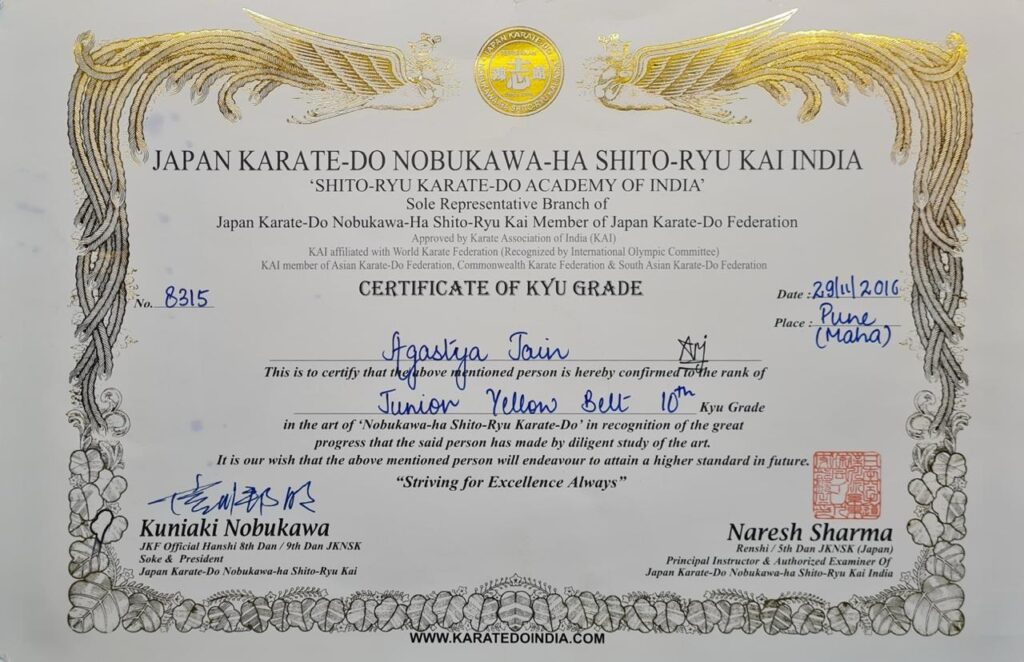 JAPAN KARATE-DO NOBUKAWA-HA SHITO-RYU KAI INDIA
'SHITO-RYU KARATE-DO ACADEMY OF INDIA'
Sole Representative Branch of
Japan Karate-Do Nobukawa-Ha Shito-Ryu Kai Member of Japan Karate-Do Federation
Approved by Karate Association of India (KAI)
KAI affiliated with World Karate Federation (Recognized by International Olympic Committee)
KAI member of Asian Karate-Do Federation, Commonwealth Karate Federation & South Asian Karate-Do Federation
CERTIFICATE OF KYU GRADE
No. 8315
Date : 29/11/2016
Place : Pune
(Maha)
Agastya Jain
This is to certify that the above mentioned person is hereby confirmed to the rank of
Junior Yellow Belt 10th Kyu Grade
in the art of 'Nobukawa-ha Shito-Ryu Karate-Do' in recognition of the great
progress that the said person has made by diligent study of the art.
It is our wish that the above mentioned person will endeavour to attain a higher standard in future.
"Striving for Excellence Always"
Kuniaki Nobukawa
JKF Official Hanshi 8th Dan / 9th Dan JKNSK
Soke & President
Japan Karate-Do Nobukawa-ha Shito-Ryu Kai
Naresh Sharma
Renshi / 5th Dan JKNSK (Japan)
Principal Instructor & Authorized Examiner Of
Japan Karate-Do Nobukawa-ha Shito-Ryu Kai India
WWW.KARATEDOINDIA.COM